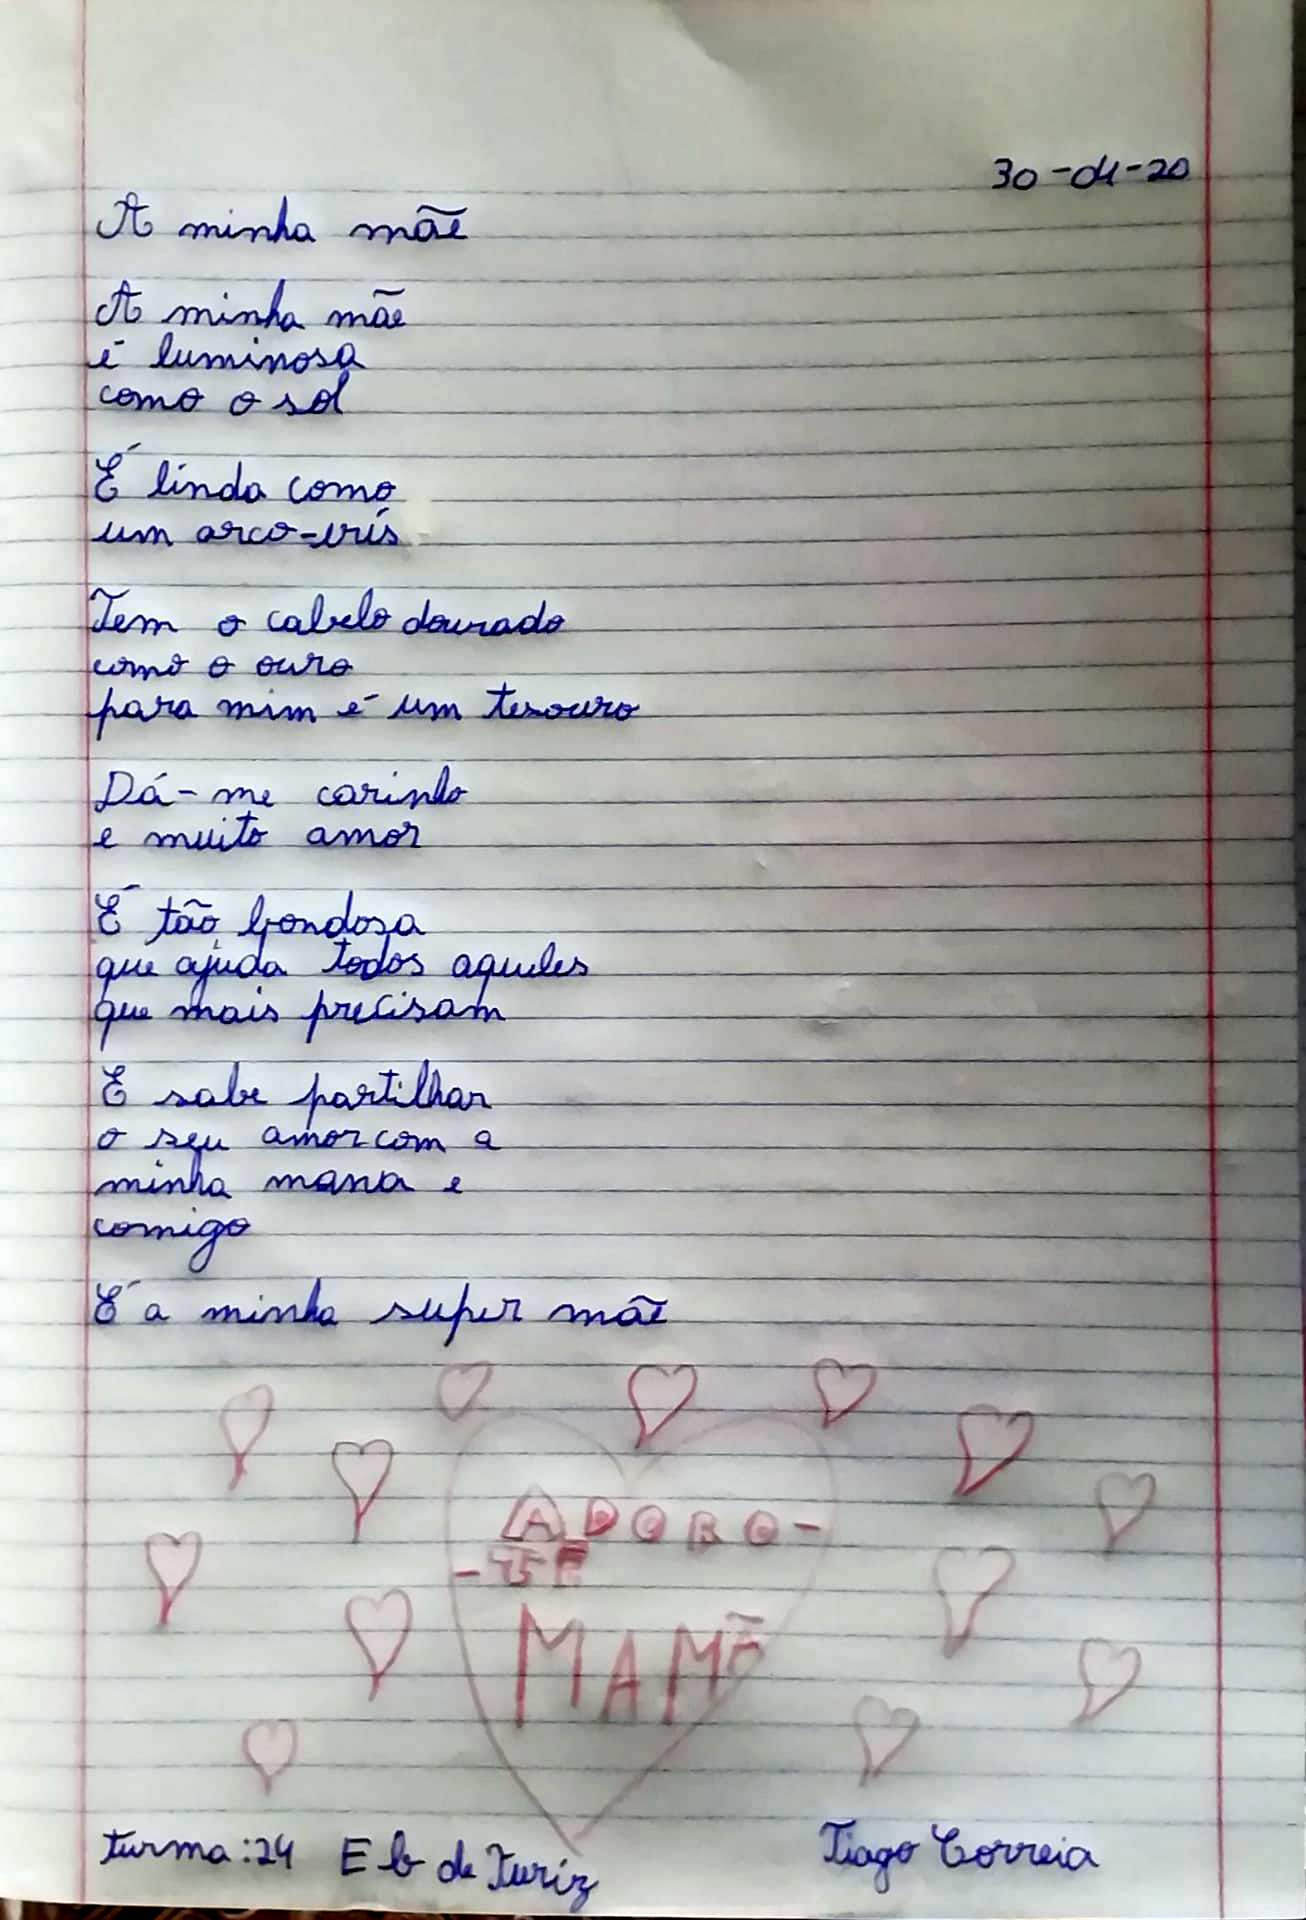 30-04-20
A minha mãe
A minha mãe
é luminosa
como o sol
É linda como
um arco-íris
Tem o cabelo dourado
como o ouro
para mim é um tesouro
Dá-me carinho
e muito amor
É tão bondosa
que ajuda todos aqueles
que mais precisam
E sabe partilhar
o seu amor com a
minha mana e
comigo
É a minha super mãe
ADORO-
-TE
MAMÃ
turma:24 Eb de Turiz
Tiago Correia